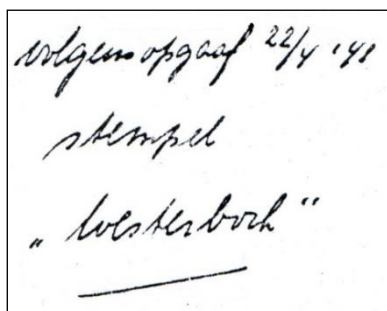 volgens opgaaf 22/4 '48
stempel
„ Westerbork "